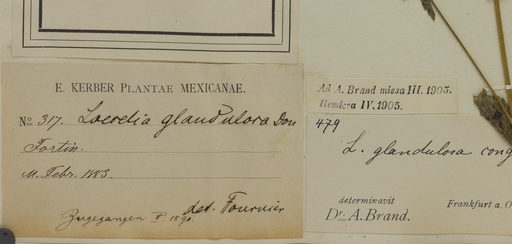 E. KERBER PLANTAE MEXICANAE.
No. 317. Loeselia glandulosa Don
Fortin.
M. Febr. 1883.
Zugegangen V. 1890.
det. Fournier
Ad A. Brand missa III. 1905.
Remissa IV. 1905.
479
L. glandulosa cong
determinavit
Dr. A. Brand.
Frankfurt a. O